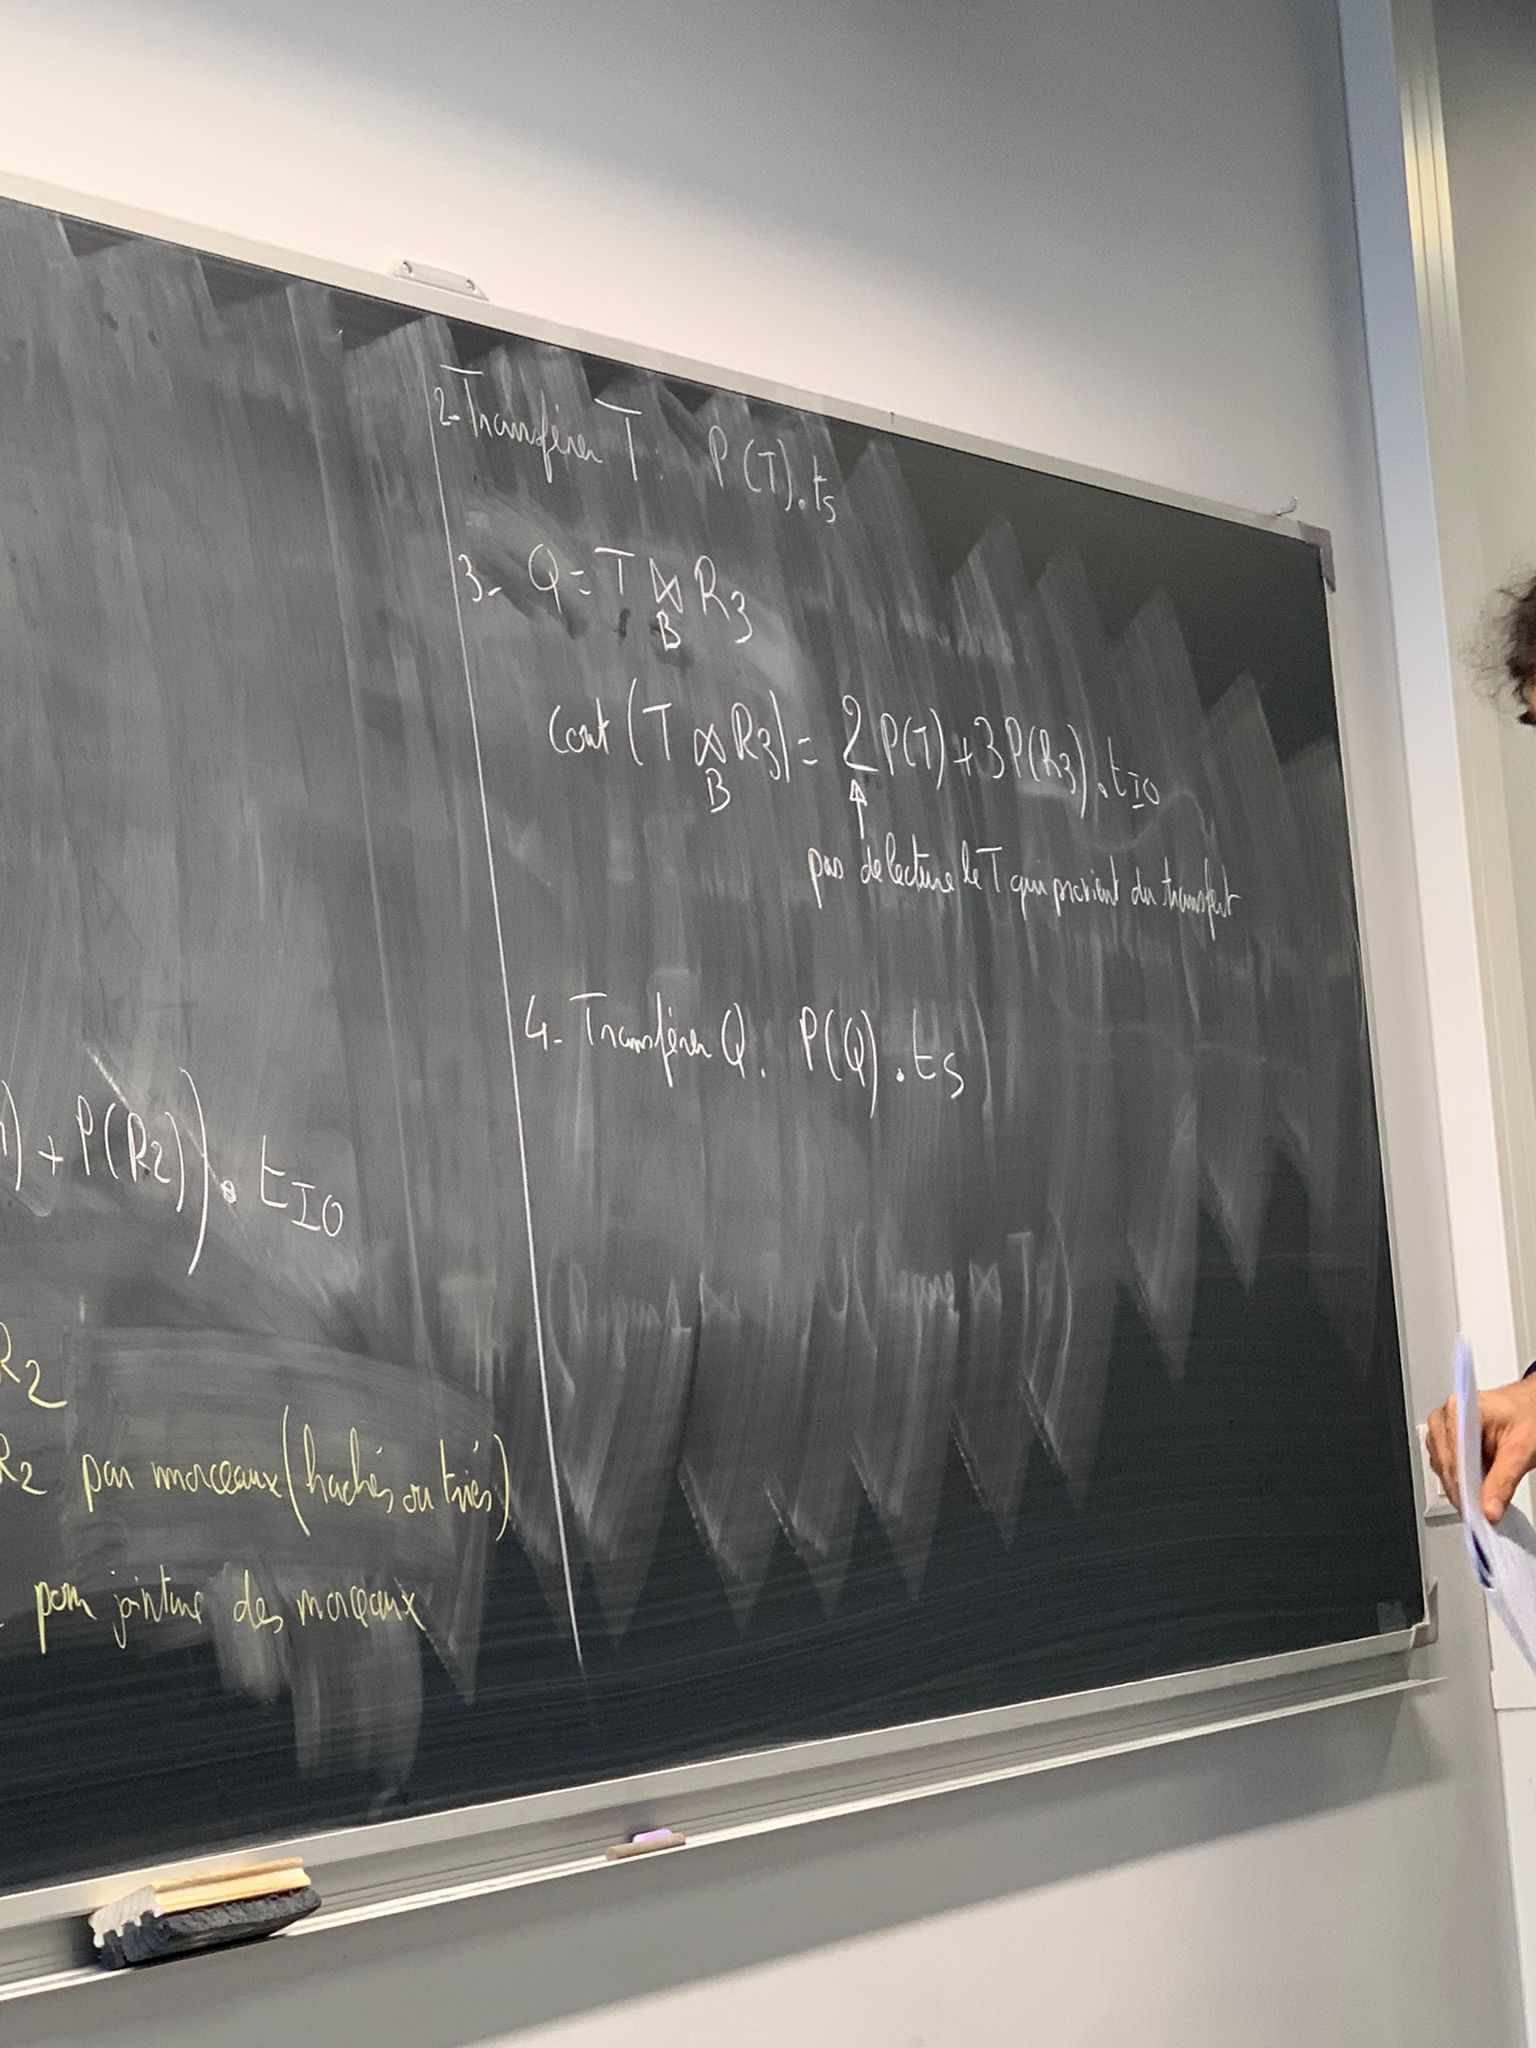 ) + P(R2)) . tIO
R2
R2 par morceaux (hachés ou triés)
pour jointure des morceaux
2- Transférer T : P(T).ts
3- Q = T ⋈ R3
B
Cout (T ⋈ R3) = 2 P(T) + 3 P(R3)).tIO
B
pas de lecture le T qui provient du transfert
4- Transférer Q. P(Q).ts